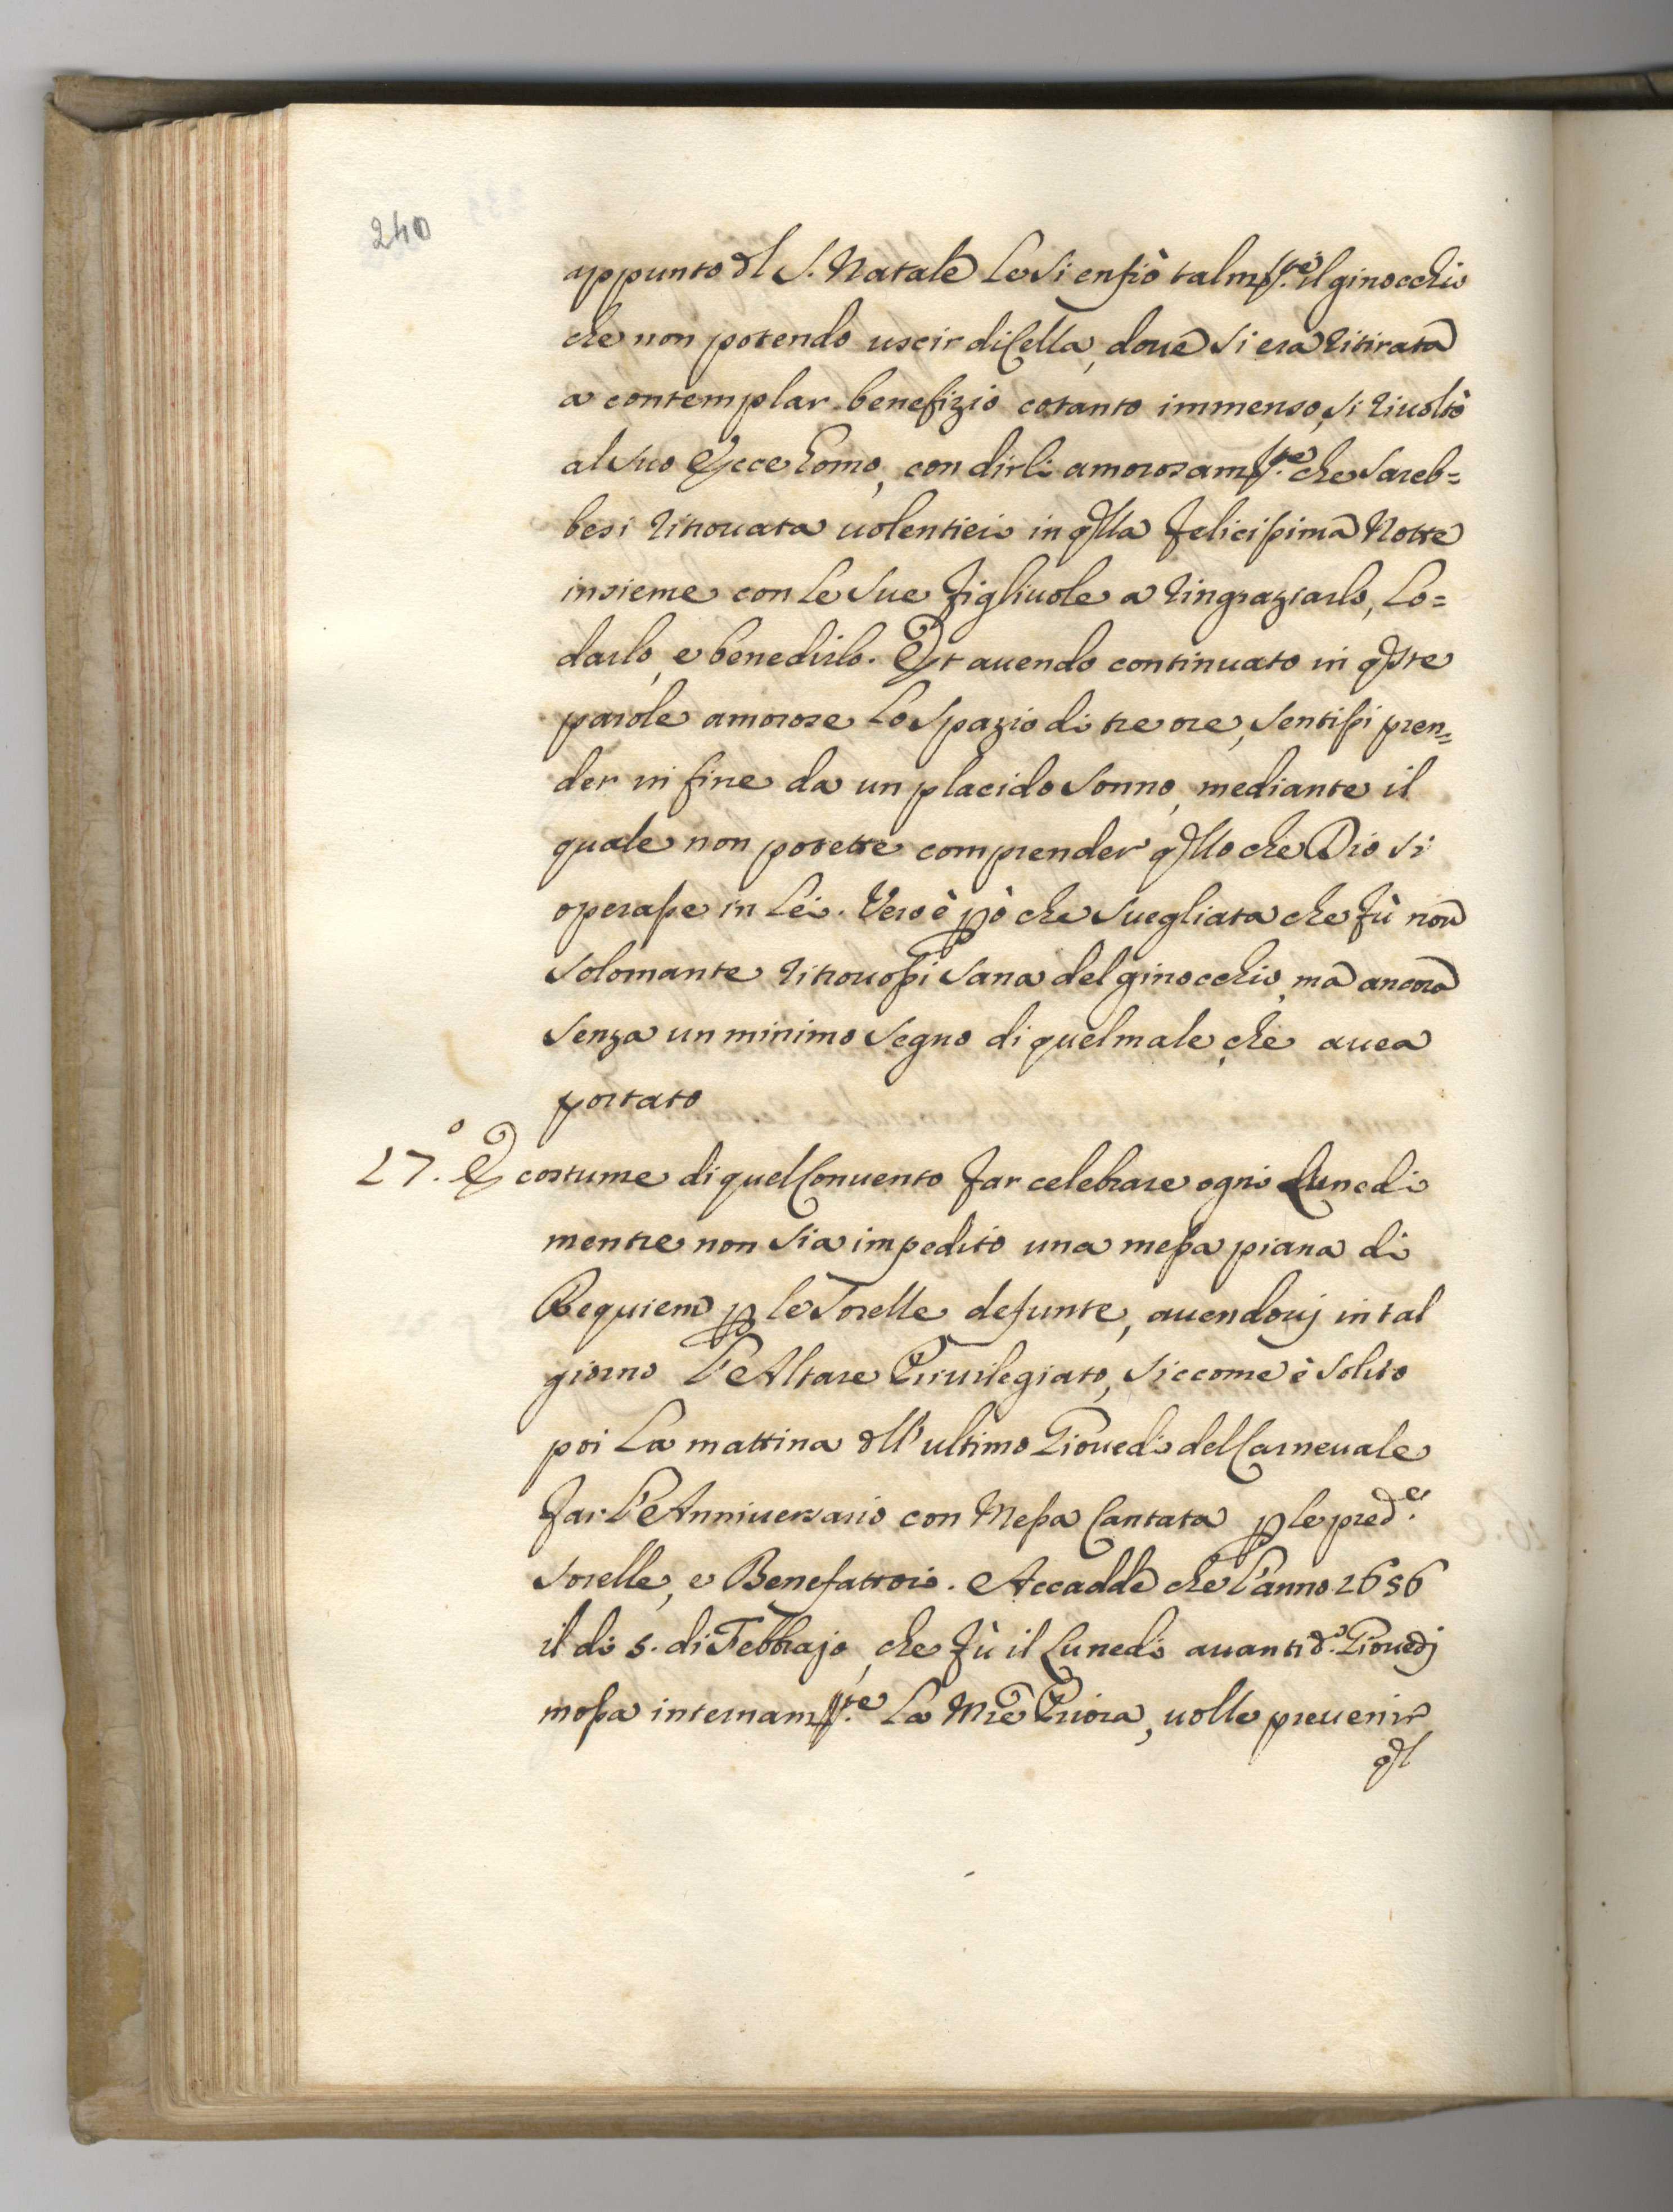 240
appunto dl S. Natale Le si enfiò talm.te il ginocchio
che non potendo uscir di Cella, doue si era ritirata
a contemplar benefizio cotanto immenso, si riuoltò
al suo Ecce homo, con dirli amorosam.te che sareb=
besi ritrouata uolentieri in qlla felicissima Notte
insieme con Le sue figliuole a ringraziarlo, Lo=
darlo, e benedirlo. Et auendo continuato in qste
parole amorose Lo spazio di tre ore, sentissi pren=
der in fine da un placido sonno, mediante il
quale non potette comprender qllo che Dio si
operasse in Lei. Vero è pò che suegliata che fù non
solomante ritrouossi sana del ginocchio, ma ancora
senza un minimo segno di quel male, che auea
portato
27.º È costume di quel Conuento far celebrare ogni Lunedi
mentre non sia impedito una messa piana di
Requiem p le Sorelle defunte, auendouj in tal
giorno L'Altare Priuilegiato, siccome è solito
poi La mattina dll'ultimo Giouedi del Carneuale
far L'Anniuersario con Messa Cantata p le pred.e
Sorelle, e Benefattori. Accadde che L'anno 1656
il di 5. di Febbrajo, che fù il Lunedi auanti d.o Giouedj
mossa internam.te La Mre Priora, uolle preuenir
ql